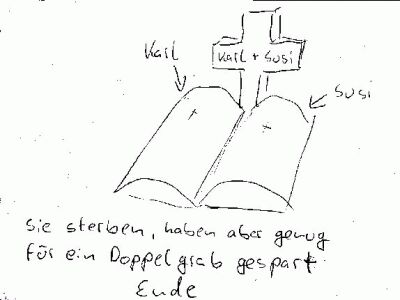 Karl
Karl + Susi
Susi
Sie sterben, haben aber genug
für ein Doppelgrab gespart.
Ende